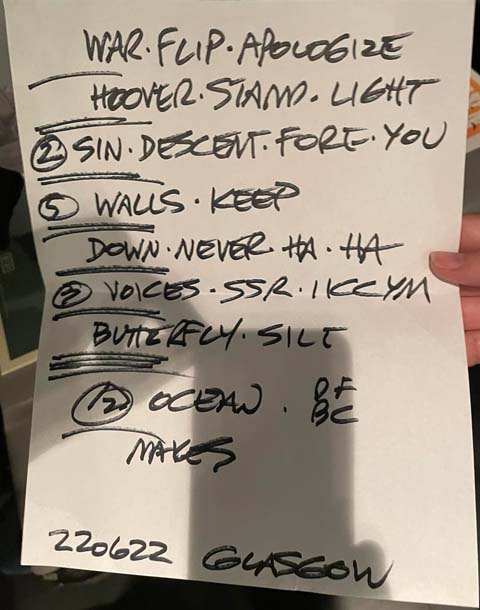 WAR · FLIP · APOLOGIZE
HOOVER · STAND · LIGHT
② SIN · DESCENT · FORE · YOU
⑤ WALLS · KEEP
DOWN · NEVER · HA · HA
② VOICES · SSR · IKCYM
BUTTERFLY · SILT
⑫ OCEAN · DF
BC
MAKES
220622 GLASGOW